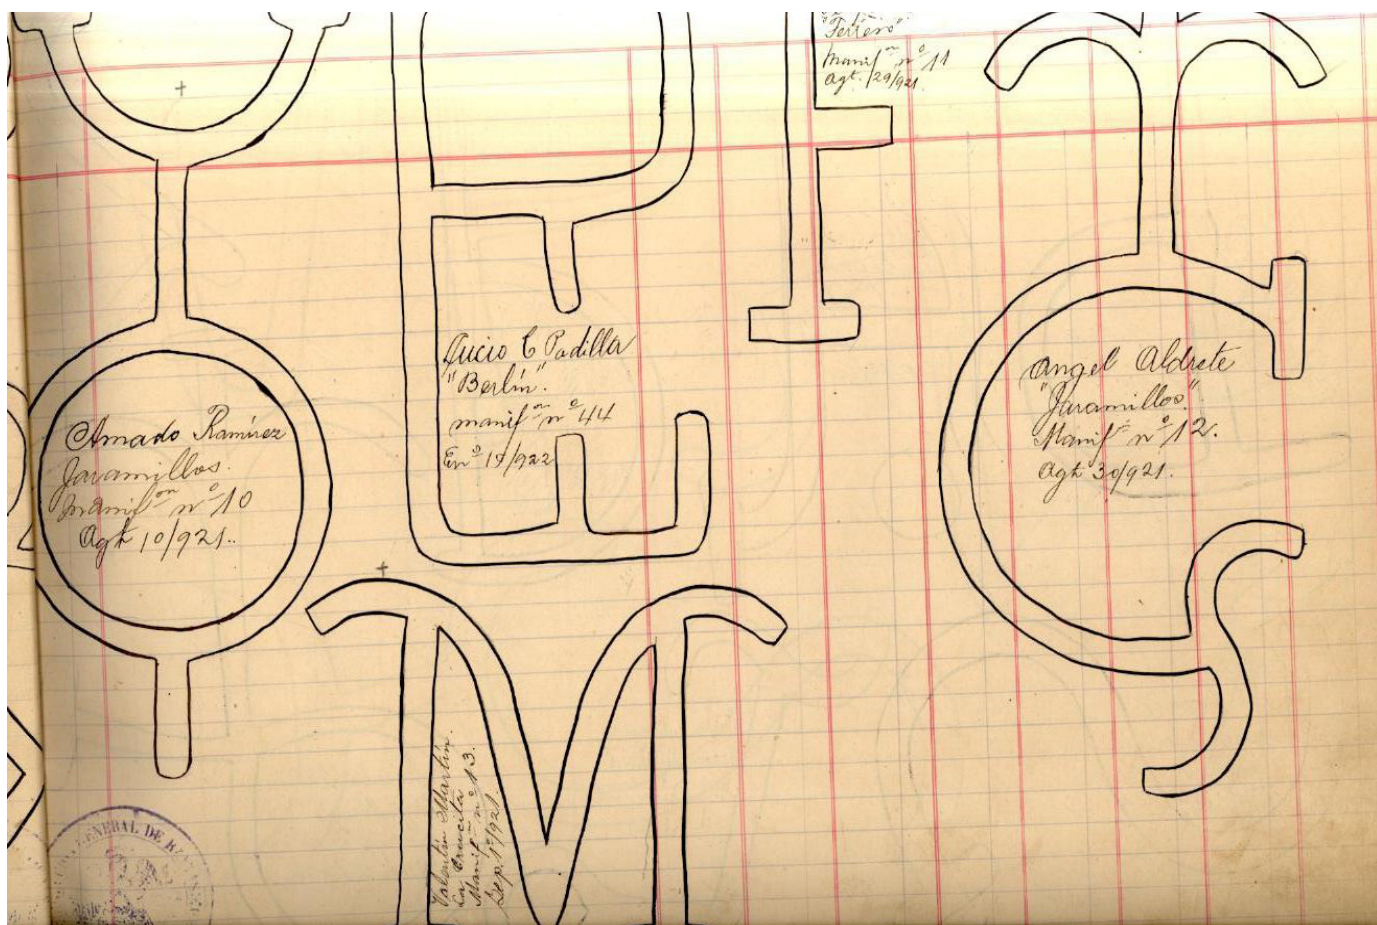 "Ferrero"
Manif.ᵒⁿ nº 11
Agt. 29/921
Amado Ramírez
Jaramillos.
Manif.ᵒⁿ nº 10
Agt 10/921.
Lucio C Padilla
"Berlín".
manif.ᵒⁿ nº 44
En.º 17/922
Angel Aldrete
"Jaramillos"
Manif.ⁿ nº 12.
Agt 30/921.
Valentín Martín.
La Crucita
Manif.ⁿ nº 13.
Sep. 1º/921.
GENERAL DE